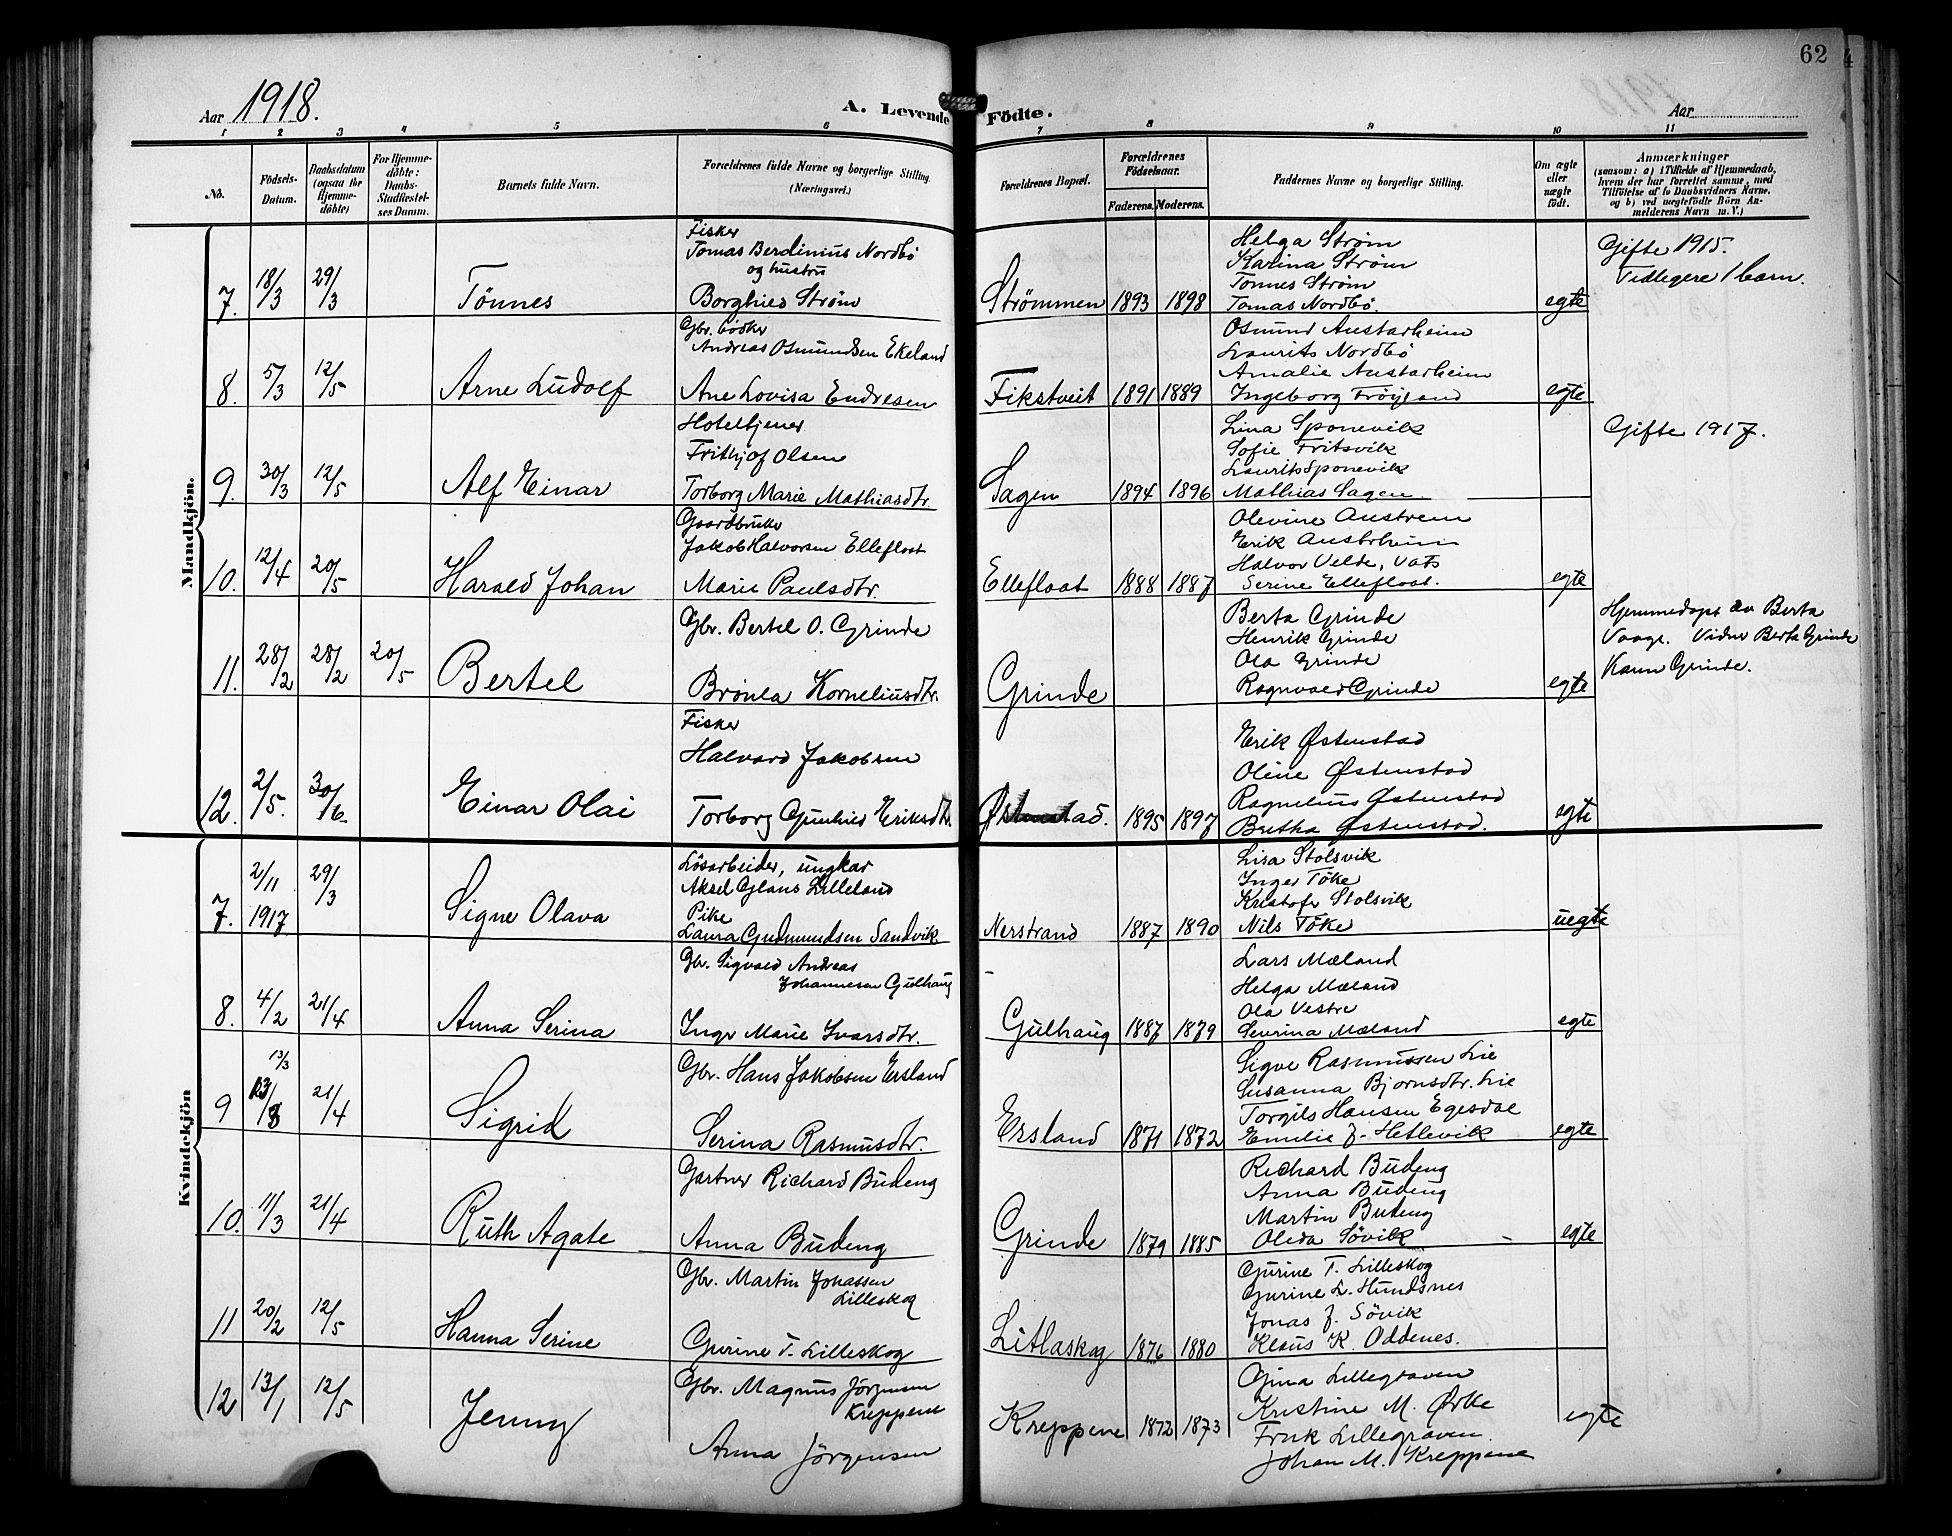 62
4
Aar 1918.
A. Levende Fødte.
Aar
1 2 3 4 5 6 7 8 9 10 11
No.
Fødsels-Datum.
Daabsdatum (ogsaa for Hjemme-døbte)
For Hjemme-døbte: Daabs-Stadfæstel-ses Datum.
Barnets fulde Navn.
Forældrenes fulde Navne og borgerlige Stilling. (Næringsvei.)
Forældrenes Bopæl.
Forældrenes Fødselsaar.
Faderens. Moderens.
Faddernes Navne og borgerlige Stilling.
Om ægte eller uægte født.
Anmærkninger
(saasom: a) i Tilfælde af Hjemmedaab, hvem der har forrettet samme, med Tilføielse af to Daabsvidners Navne, og b) ved uægtefødte Børn An-melderens Navn m. V.)
Mandkjön.
7. 18/3 29/3 Tönnes
Fisker
Tomas Berdinius Nordbö
og hustru
Borghild Ström
Strömmen 1893 1898
Helga Ström
Karina Ström
Tönnes Ström
Tomas Nordbö.
egte
Gifte 1915.
Tidligere 1 barn.
8. 5/3 12/5 Arne Ludolf
Gbr. bödker
Andreas Osmundsen Ekeland
Ane Lovisa Endresen
Fikstveit 1891 1889
Osmund Austarheim
Laurits Nordbö
Amalie Austarheim
Ingeborg Fröyland
egte
9. 30/3 12/5 Alf Einar
Hoteltjener
Frithjof Olsen
Torborg Marie Mathiasdtr.
Sagen 1894 1896
Lina Sponevik
Sofie Fritsvik
Laurits Sponevik
Mathias Sagen
Gifte 1917.
10. 12/4 20/5 Harald Johan
Gaardbruker
Jakob Halvorsen Ellefloat
Marie Paulsdtr.
Ellefloat 1888 1887
Olevine Austrem
Erik Austrheim
Halvor Velde, Vats
Serine Ellefloat.
egte
11. 28/2 28/2 20/5 Bertel
Gbr. Bertel O. Grinde
Brönla Korneliusdtr.
Grinde
Berta Grinde
Henrik Grinde
Ola Grinde
Ragnvald Grinde
egte
Hjemmedöpt av Berta
Vaage. Vidner Berta Grinde
Karen Grinde.
12. 2/5. 30/6. Einar Olai
Fisker
Halvard Jakobsen
Torborg Gunhild Eriksdtr.
Østenstad. 1895 1897
Erik Østenstad
Oline Østenstad
Ragnelius Østenstad
Bretha Østenstad.
egte
Kvindekjön
7. 2/11 1917 29/3 Signe Olava
Lösarbeider, ungkar
Aksel Glaus Lilleland
Pike
Laura Gudmundsen Sandvik
Nerstrand 1887 1890
Lisa Stolsvik
Inger Töke
Kristofr Stolsvik
Nils Töke
uegte
8. 4/2 21/4 Anna Serina
Gbr. Sigvald Andreas
Johannesen Gulhaug
Inger Marie Ivarsdtr.
Gulhaug 1887 1879
Lars Mæland
Helga Mæland
Ola Vestre
Severina Mæland
egte
9 13/3 13/3 21/4 Sigrid
Gbr. Hans Jakobsen Ersland
Serina Rasmusdtr.
Ersland 1871 1872
Sigve Rasmussen Lie
Susanna Bjornsdtr. Lie
Torgils Hansen Egesdal
Emilie J. Hetlevik
egte
10. 11/3 21/4 Ruth Agate
Gartner Richard Budeng
Anna Budeng
Grinde 1879 1885
Richard Budeng
Anna Budeng
Martin Budeng
Oleda Sövik
egte
11 20/2 12/5 Hanna Serine
Gbr. Martin Johassen
Lilleskog
Gurine T. Lilleskog
Litlaskog 1876 1880
Gurine T. Lilleskog
Gurine L. Hundsnes
Jonas J. Sövik
Klaus K. Oddenes.
12 13/1 12/5 Jenny
Gbr. Magnus Jörgensen
Kreppene
Anna Jörgensen
Kreppene 1872 1873
Gina Lillegraven
Kristine M. Ørke
Lillegraven.
Johan M. Kreppene
egte